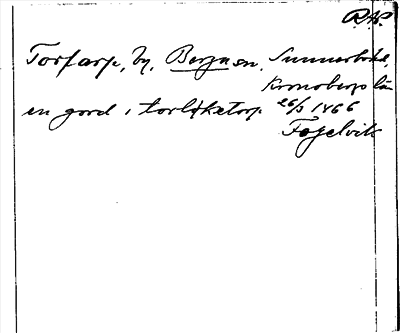 RAP.
Torparp, by, Berga sn. Sunnerbo hd,
Kronobergs län
en gord i torlþketorp 26/3 1466
Fogelvik